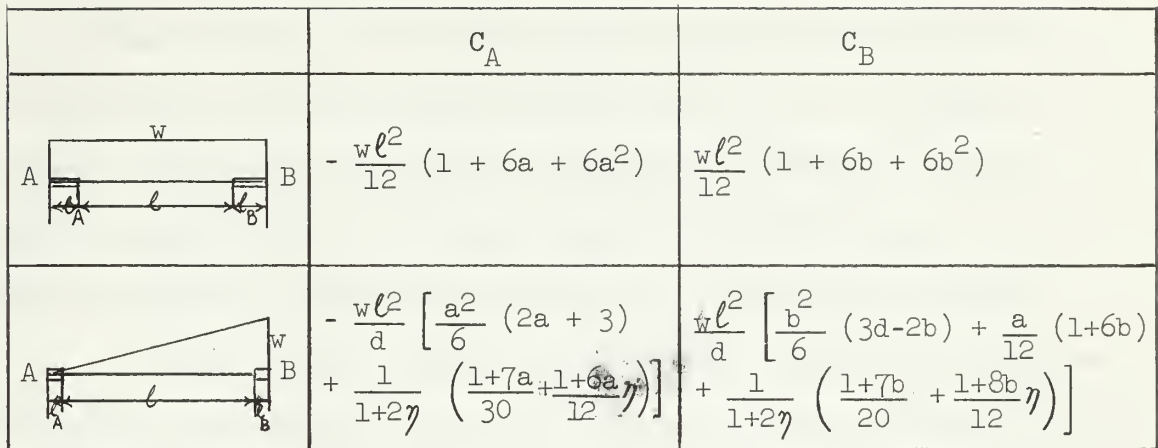 C_A C_B
w
A B
ℓ_A ℓ ℓ_B
- wℓ²/12 (1 + 6a + 6a²)
wℓ²/12 (1 + 6b + 6b²)
w
A B
ℓ_A ℓ ℓ_B
- wℓ²/d [ a²/6 (2a + 3)
+ 1/(1+2η) ( (1+7a)/30 + (1+6a)/12 η ) ]
wℓ²/d [ b²/6 (3d-2b) + a/12 (1+6b)
+ 1/(1+2η) ( (1+7b)/20 + (1+8b)/12 η ) ]